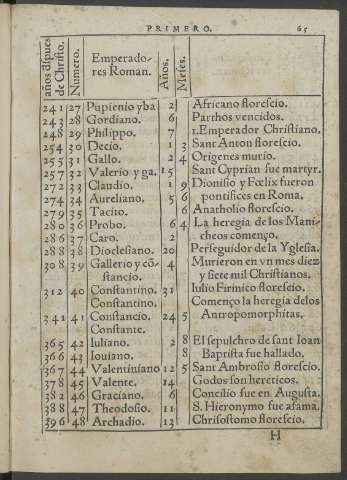 PRIMERO. 65
años dspues de Christo. Numero. Emperado-res Roman. Años, Meses.
241 27 Pupienio yba 2 Africano florescio.
243 28 Gordiano. 6 Parthos vencidos.
248 29 Philippo. 7 1. Emperador Christiano.
254 30 Decio. 1 3 Sant Anton florescio.
255 31 Gallo. 2 4 Origenes murio.
257 32 Valerio y ga. 15 Sant Cyprian fue martyr.
272 33 Claudio. 1 9 Dionisio y Fœlix fueron
274 34 Aureliano. 5 6 pontifices en Roma.
279 35 Tacito. 6 Anatholio florescio.
280 36 Probo. 6 4 La heregia de los Mani-
286 37 Caro. 2 cheos començo.
288 38 Dioclesiano. 20 Perseguidor de la Yglesia.
308 39 Gallerio y cõ- 4 Murieron en vn mes diez
stancio. y siete mil Christianos.
312 40 Constantino. 31 Iulio Firmico florescio.
Constantino. Començo la heregia delos
341 41 Constancio. 24 5 Antropomorphitas.
Constante.
365 42 Iuliano. 2 8 El sepulchro de sant Ioan
366 43 Iouiano. 8 Baptista fue hallado.
367 44 Valentiniano 12 5 Sant Ambrosio florescio.
378 45 Valente. 14 Godos son hereticos.
382 46 Graciano. 6 Concilio fue en Augusta.
388 47 Theodosio. 11 S. Hieronymo fue afama.
396 48 Archadio. 13 Chrisostomo florescio.
H